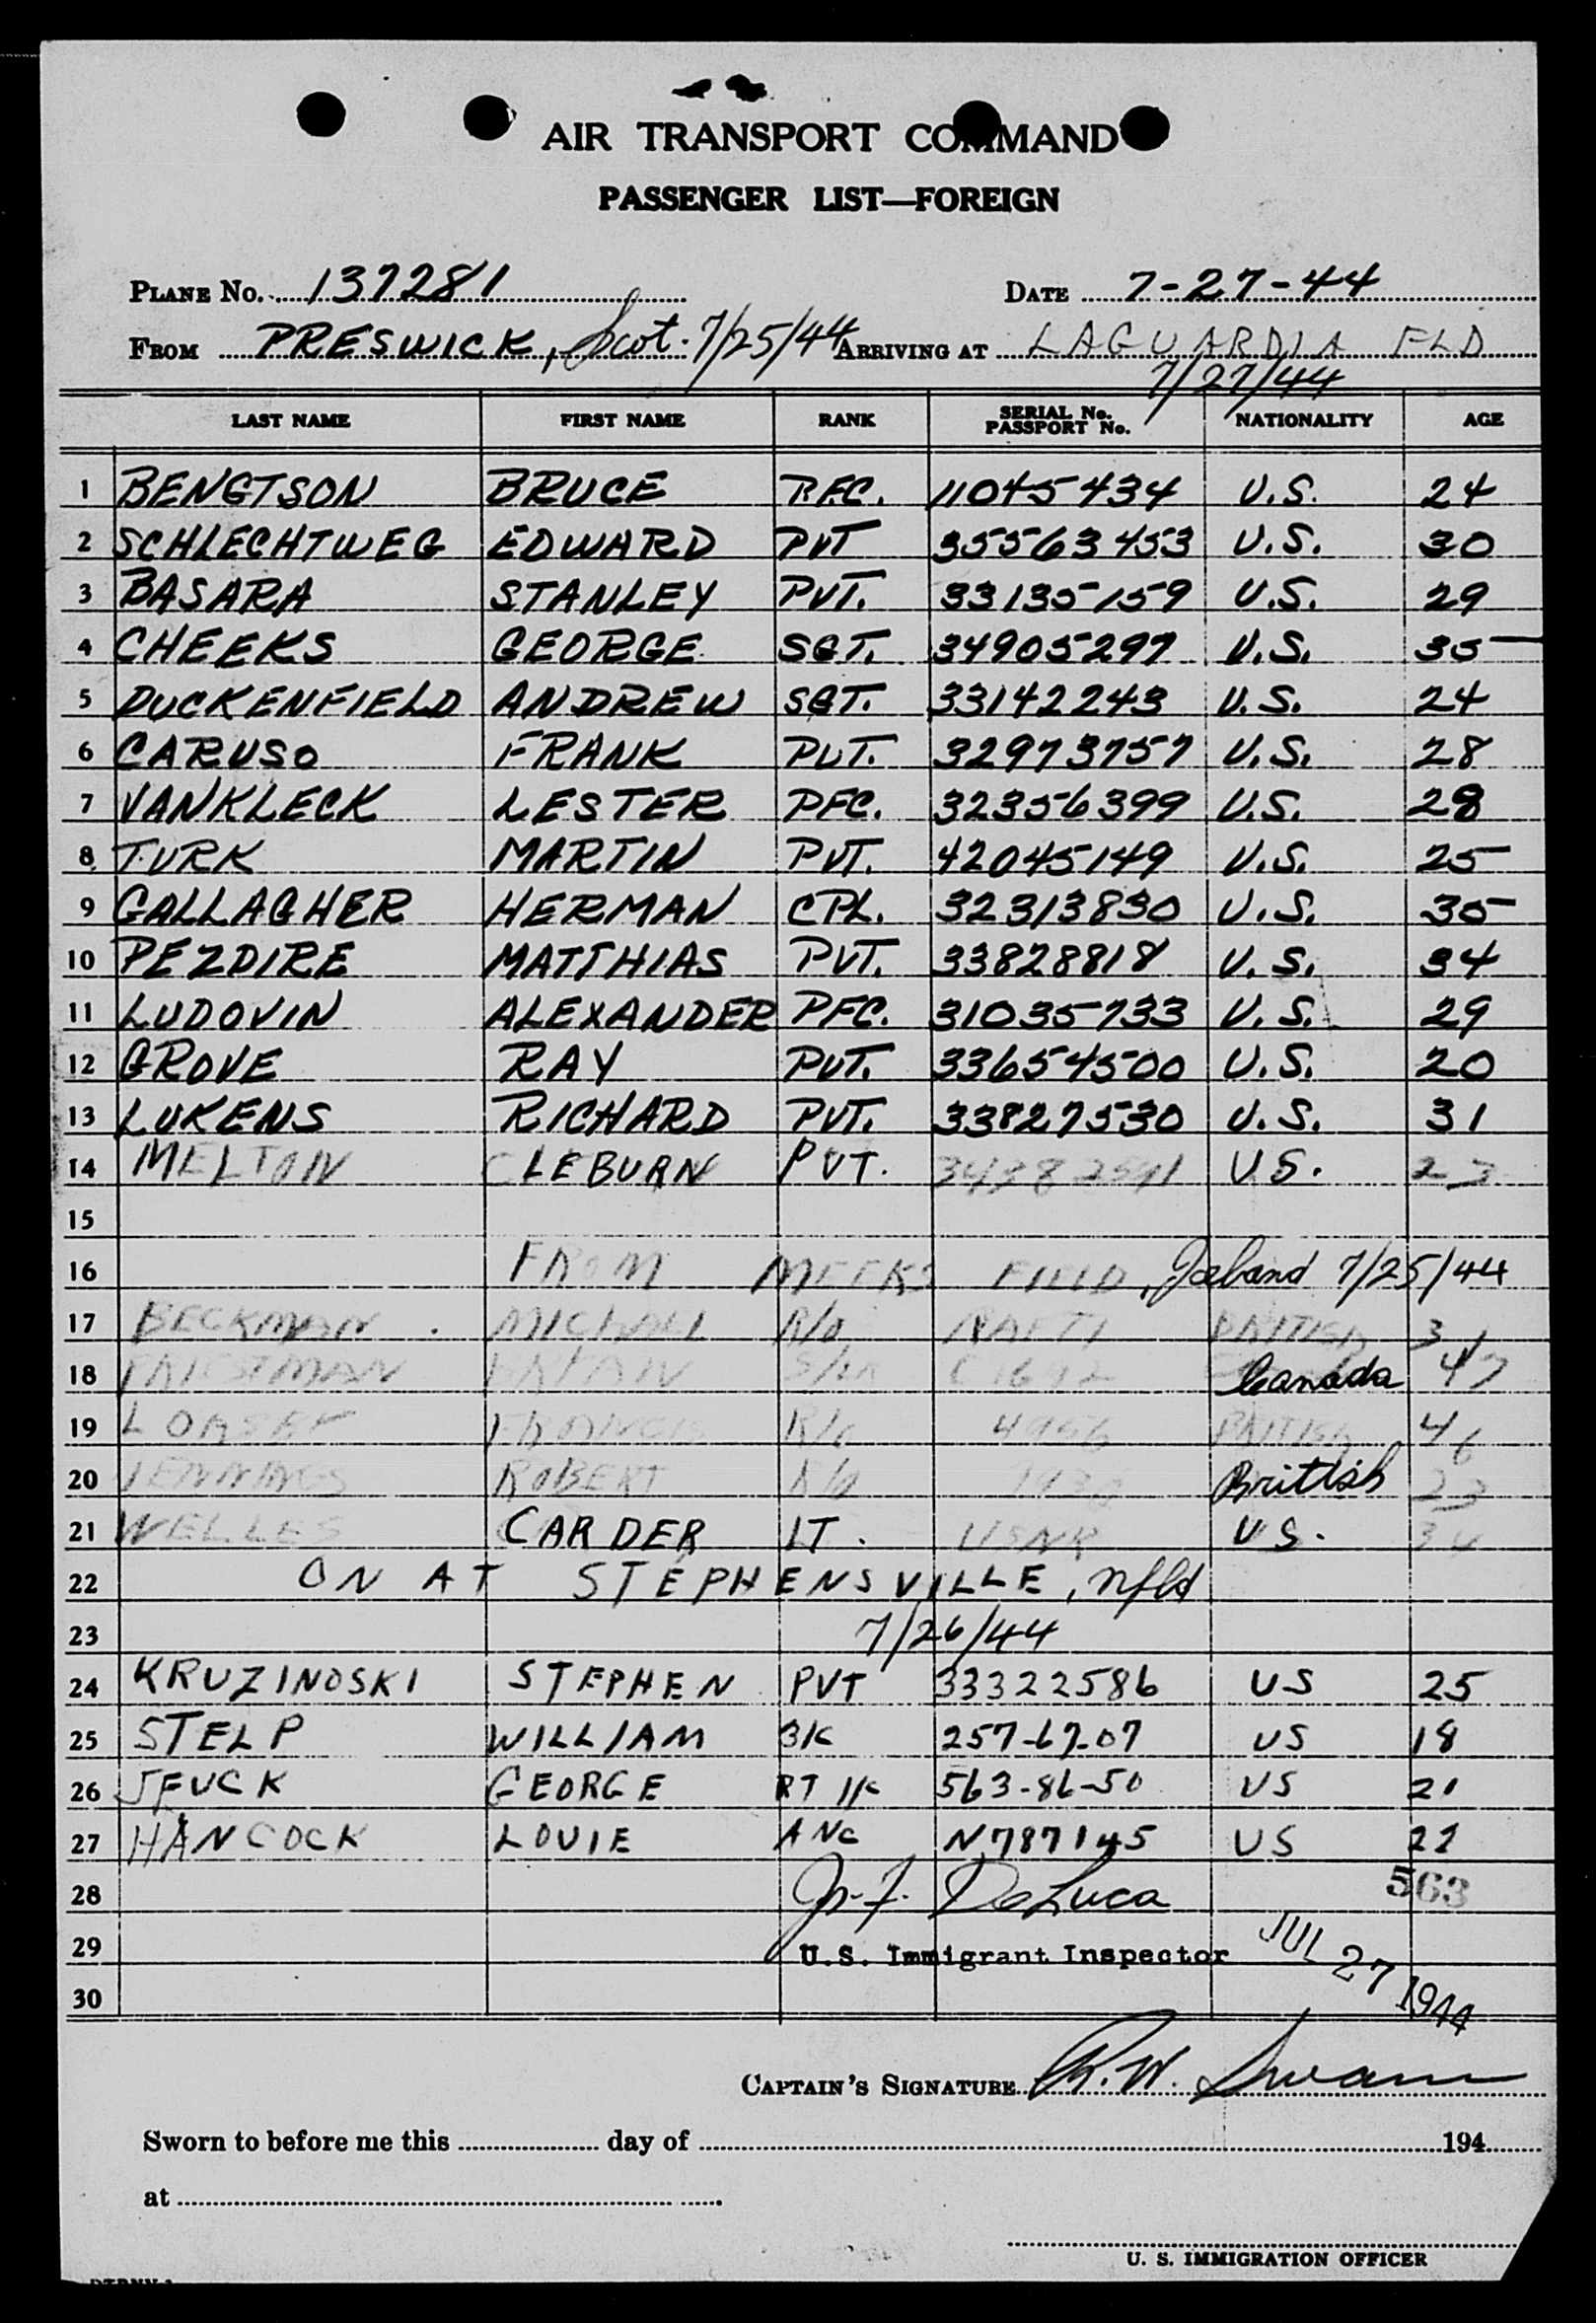 AIR TRANSPORT COMMAND
PASSENGER LIST—FOREIGN
PLANE No. 137281 DATE 7-27-44
FROM PRESWICK, Scot. 7/25/44 ARRIVING AT LAGUARDIA FLD
7/27/44
LAST NAME FIRST NAME RANK SERIAL No. PASSPORT No. NATIONALITY AGE
1 BENGTSON BRUCE PFC. 11045434 U.S. 24
2 SCHLECHTWEG EDWARD PVT 35563453 U.S. 30
3 BASARA STANLEY PVT. 33135159 U.S. 29
4 CHEEKS GEORGE SGT. 34905297 U.S. 35
5 DUCKENFIELD ANDREW SGT. 33142243 U.S. 24
6 CARUSO FRANK PVT. 32973757 U.S. 28
7 VANKLECK LESTER PFC. 32356399 U.S. 28
8 TURK MARTIN PVT. 42045149 U.S. 25
9 GALLAGHER HERMAN CPL. 32313830 U.S. 35
10 PEZDIRE MATTHIAS PVT. 33828818 U.S. 34
11 LUDOVIN ALEXANDER PFC. 31035733 U.S. 29
12 GROVE RAY PVT. 33654500 U.S. 20
13 LUKENS RICHARD PVT. 33827530 U.S. 31
14 MELTON CLEBURN PVT. U.S. 23
15
16 FROM MEEKS FIELD, Iceland 7/25/44
17 BECKMAN MICHAEL R/O BRITISH
18 Canada 47
19 R/O BRITISH 46
20 JENNINGS ROBERT R/O British 23
21 WELLES CARDER LT. USNR US. 34
22 ON AT STEPHENSVILLE, Nfld
23 7/26/44
24 KRUZINOSKI STEPHEN PVT 33322586 US 25
25 STELP WILLIAM 257-67-07 US 18
26 GEORGE 563-86-50 US 21
27 HANCOCK LOUIE ANC N787145 US 22
28 DeLuca 563
29 U.S. Immigrant Inspector JUL 27 1944
30
CAPTAIN'S SIGNATURE R. W. Swann
Sworn to before me this day of 194
at
U. S. IMMIGRATION OFFICER